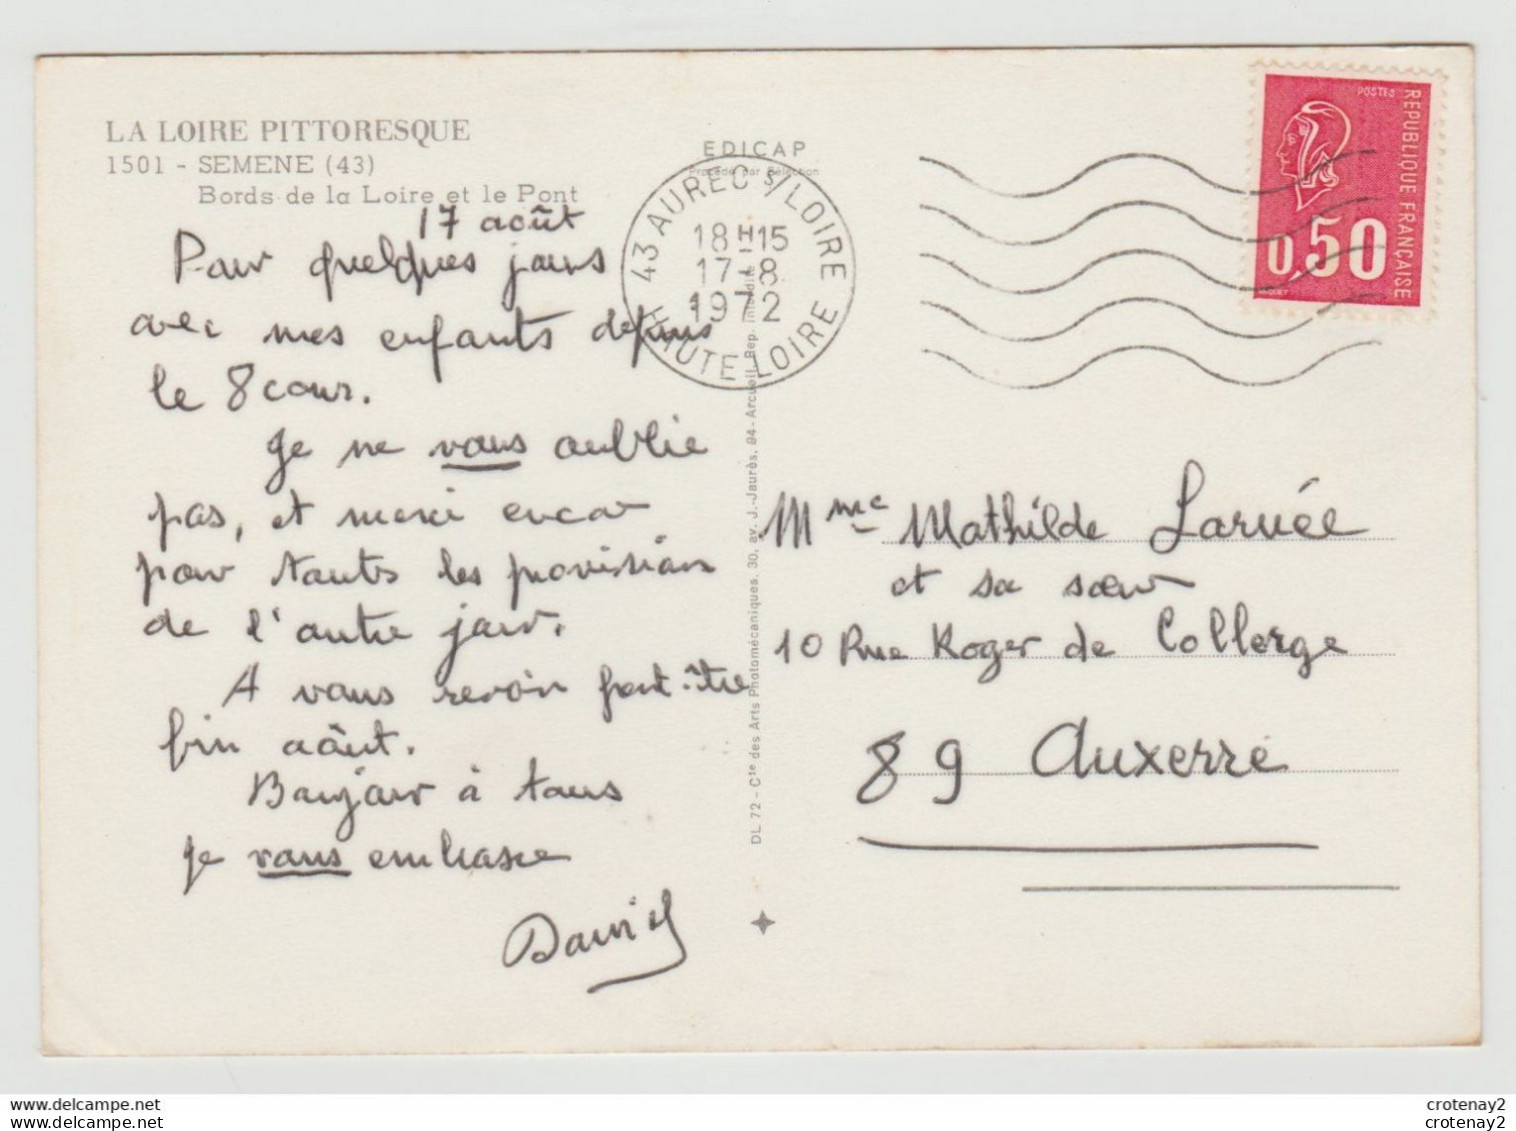 LA LOIRE PITTORESQUE
1501 - SEMENE (43)
Bords de la Loire et le Pont
17 août
Pour quelques jours
avec mes enfants depuis
le 8 cour.
Je ne vous oublie
pas, et merci encor
pour toutes les provision
de l'autre jour.
A vous revoir peut-être
fin août.
Bonjour à tous
je vous embrasse
David
EDICAP
Procédé par Sélection
43 AUREC S/LOIRE
18H15
17-8
1972
HAUTE LOIRE
DL 72 - Cie des Arts Photomécaniques, 30, av. J.-Jaurès, 94 - Arcueil Rep. Interdite
POSTES
REPUBLIQUE FRANÇAISE
0,50
Mme Mathilde Larvée
et sa sœur
10 Rue Roger de Collerge
89 Auxerre
delcampe.net
crotenay2
crotenay2